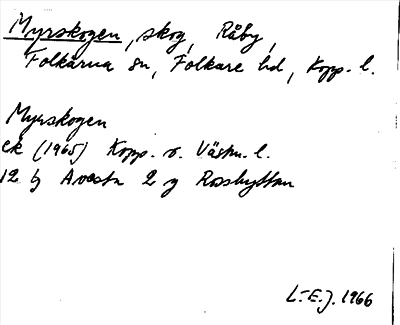 Myrskogen, skog, Råby,
Folkärna sn, Folkare hd, Kopp. l.
Myrskogen
ek (1965) Kopp. o. Västm. l.
12 g Avesta 2 g Rosshyttan
L-E.J. 1966